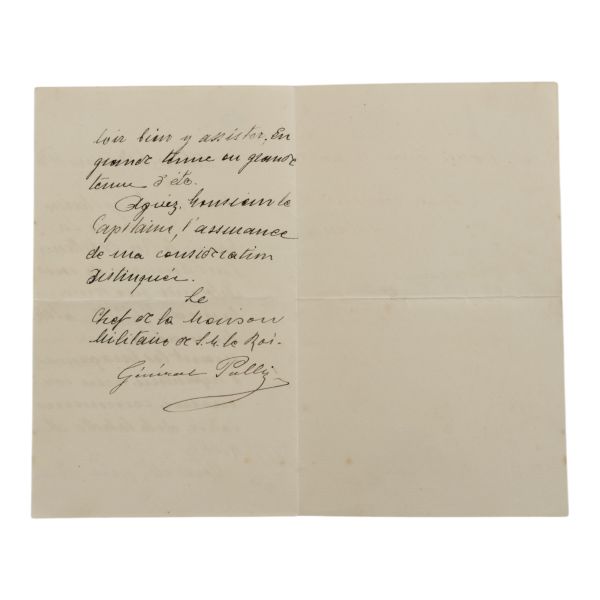 loir bien y assister, En
grande tenue ou grande
tenue d'été.
Agréez, Monsieur le
Capitaine, l'assurance
de ma considération
distinguée.
Le
Chef de la Maison
Militaire de S. M. le Roi.
Général